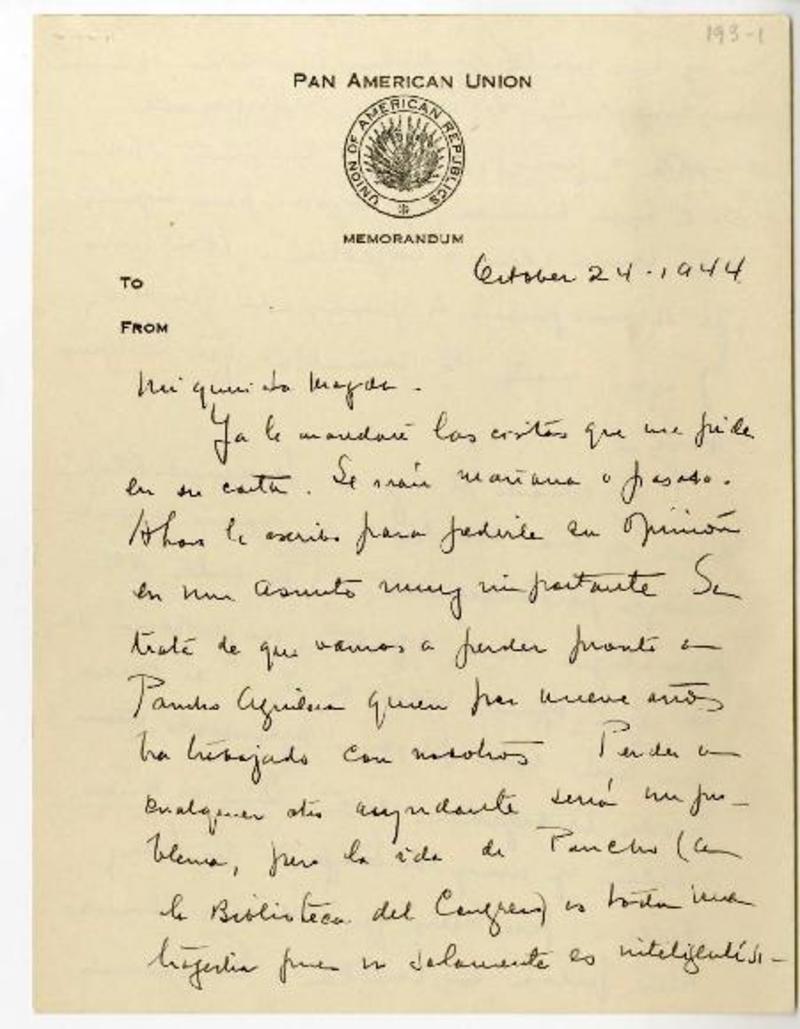 193-1
PAN AMERICAN UNION
UNION OF AMERICAN REPUBLICS
MEMORANDUM
October 24-1944
TO
FROM
Mi querida Magda.
Ya le mandaré las cositas que me pide
en su carta. Se irán mañana o pasado.
Ahora le escribo para pedirle su opinión
en un asunto muy importante Se
trata de que vamos a perder pronto a
Pancho Aguilera quien por nueve años
ha trabajado con nosotros Perder a
cualquier otro ayudante sería un pro-
blema, pero la ida de Pancho (a
la Biblioteca del Congreso) es toda una
tragedia pues no solamente es inteligentísi-